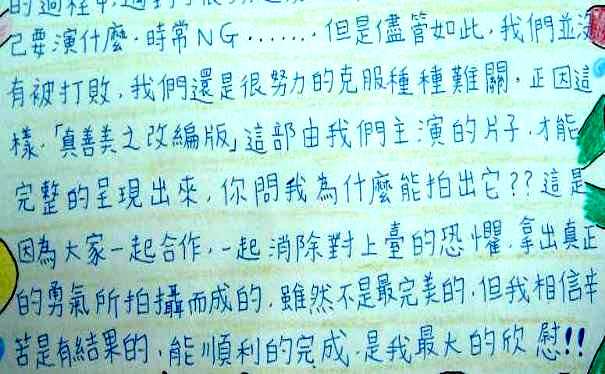 的過程中,遇到了很
己要演什麼,時常NG.......,但是儘管如此,我們並沒
有被打敗,我們還是很努力的克服種種難關。正因這
樣,「真善美之改編版」這部由我們主演的片子,才能
完整的呈現出來,你問我為什麼能拍出它??這是
因為大家一起合作,一起消除對上臺的恐懼,拿出真正
的勇氣所拍攝而成的,雖然不是最完美的,但我相信辛
苦是有結果的,能順利的完成,是我最大的欣慰!!